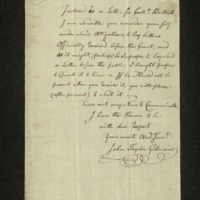 Inclosed is a Letter for Cadr. Bartlett
I am sensible you consider your self
under strict Obligations to lay Letters
Officially Received before the Court, and
as it might, perhaps, be improper to lay such
a Letter before the public, I thought proper
to Direct it to him — If he should not be
present when you receive it, you will please
(as the present) to it
have not any thing to Communicate
I have the Honour to be
with due Respect
Your most Obedt. Servt.
John Taylor Gilman